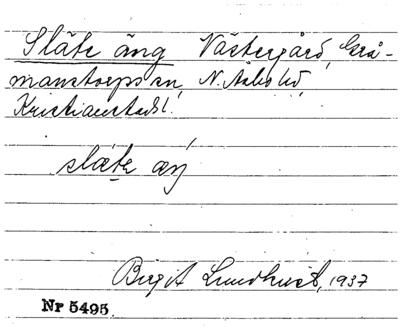 Släte äng Västergård, Grå-
manstorps sn, N. Åsbo hd,
Kristianstads l.
slæ̀te æŋ́
Birgit Lundkvist, 1937
Nr 5495.